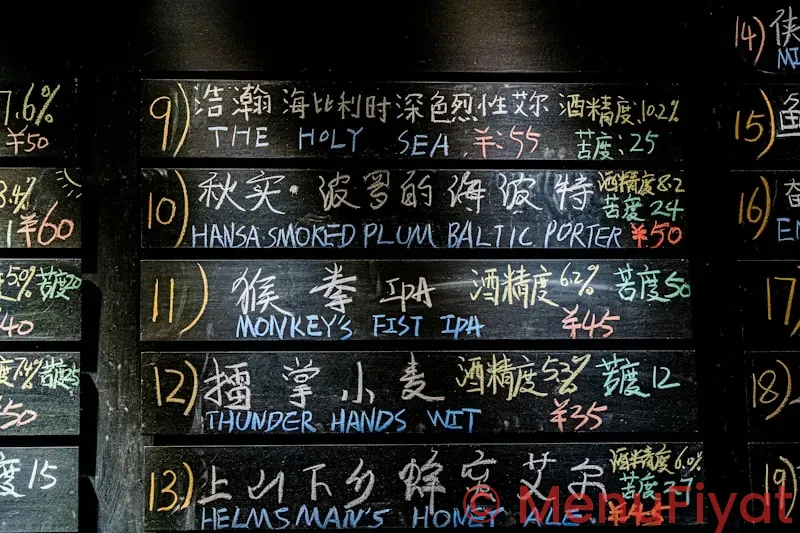 7.6%
¥50
8.4%
¥60
5.0% 苦度20
¥40
度7.4% 苦度25
¥50
度15
9) 浩瀚 海比利时深色烈性艾尔 酒精度:10.2%
THE HOLY SEA ¥:55 苦度:25
10) 秋实· 波罗的海波特 酒精度8.2
苦度24
HANSA SMOKED PLUM BALTIC PORTER ¥50
11) 猴拳 IPA 酒精度6.2% 苦度50
MONKEY'S FIST IPA ¥45
12) 擂掌小麦 酒精度5.3% 苦度12
THUNDER HANDS WIT ¥35
13) 上山下乡 蜂蜜艾尔 酒精度6.0%
苦度27
HELMSMAN'S HONEY ALE ¥45
14) 侠
MI
15) 鱼
16) 奋
EN
17)
18)
19)
© MenuFiyat